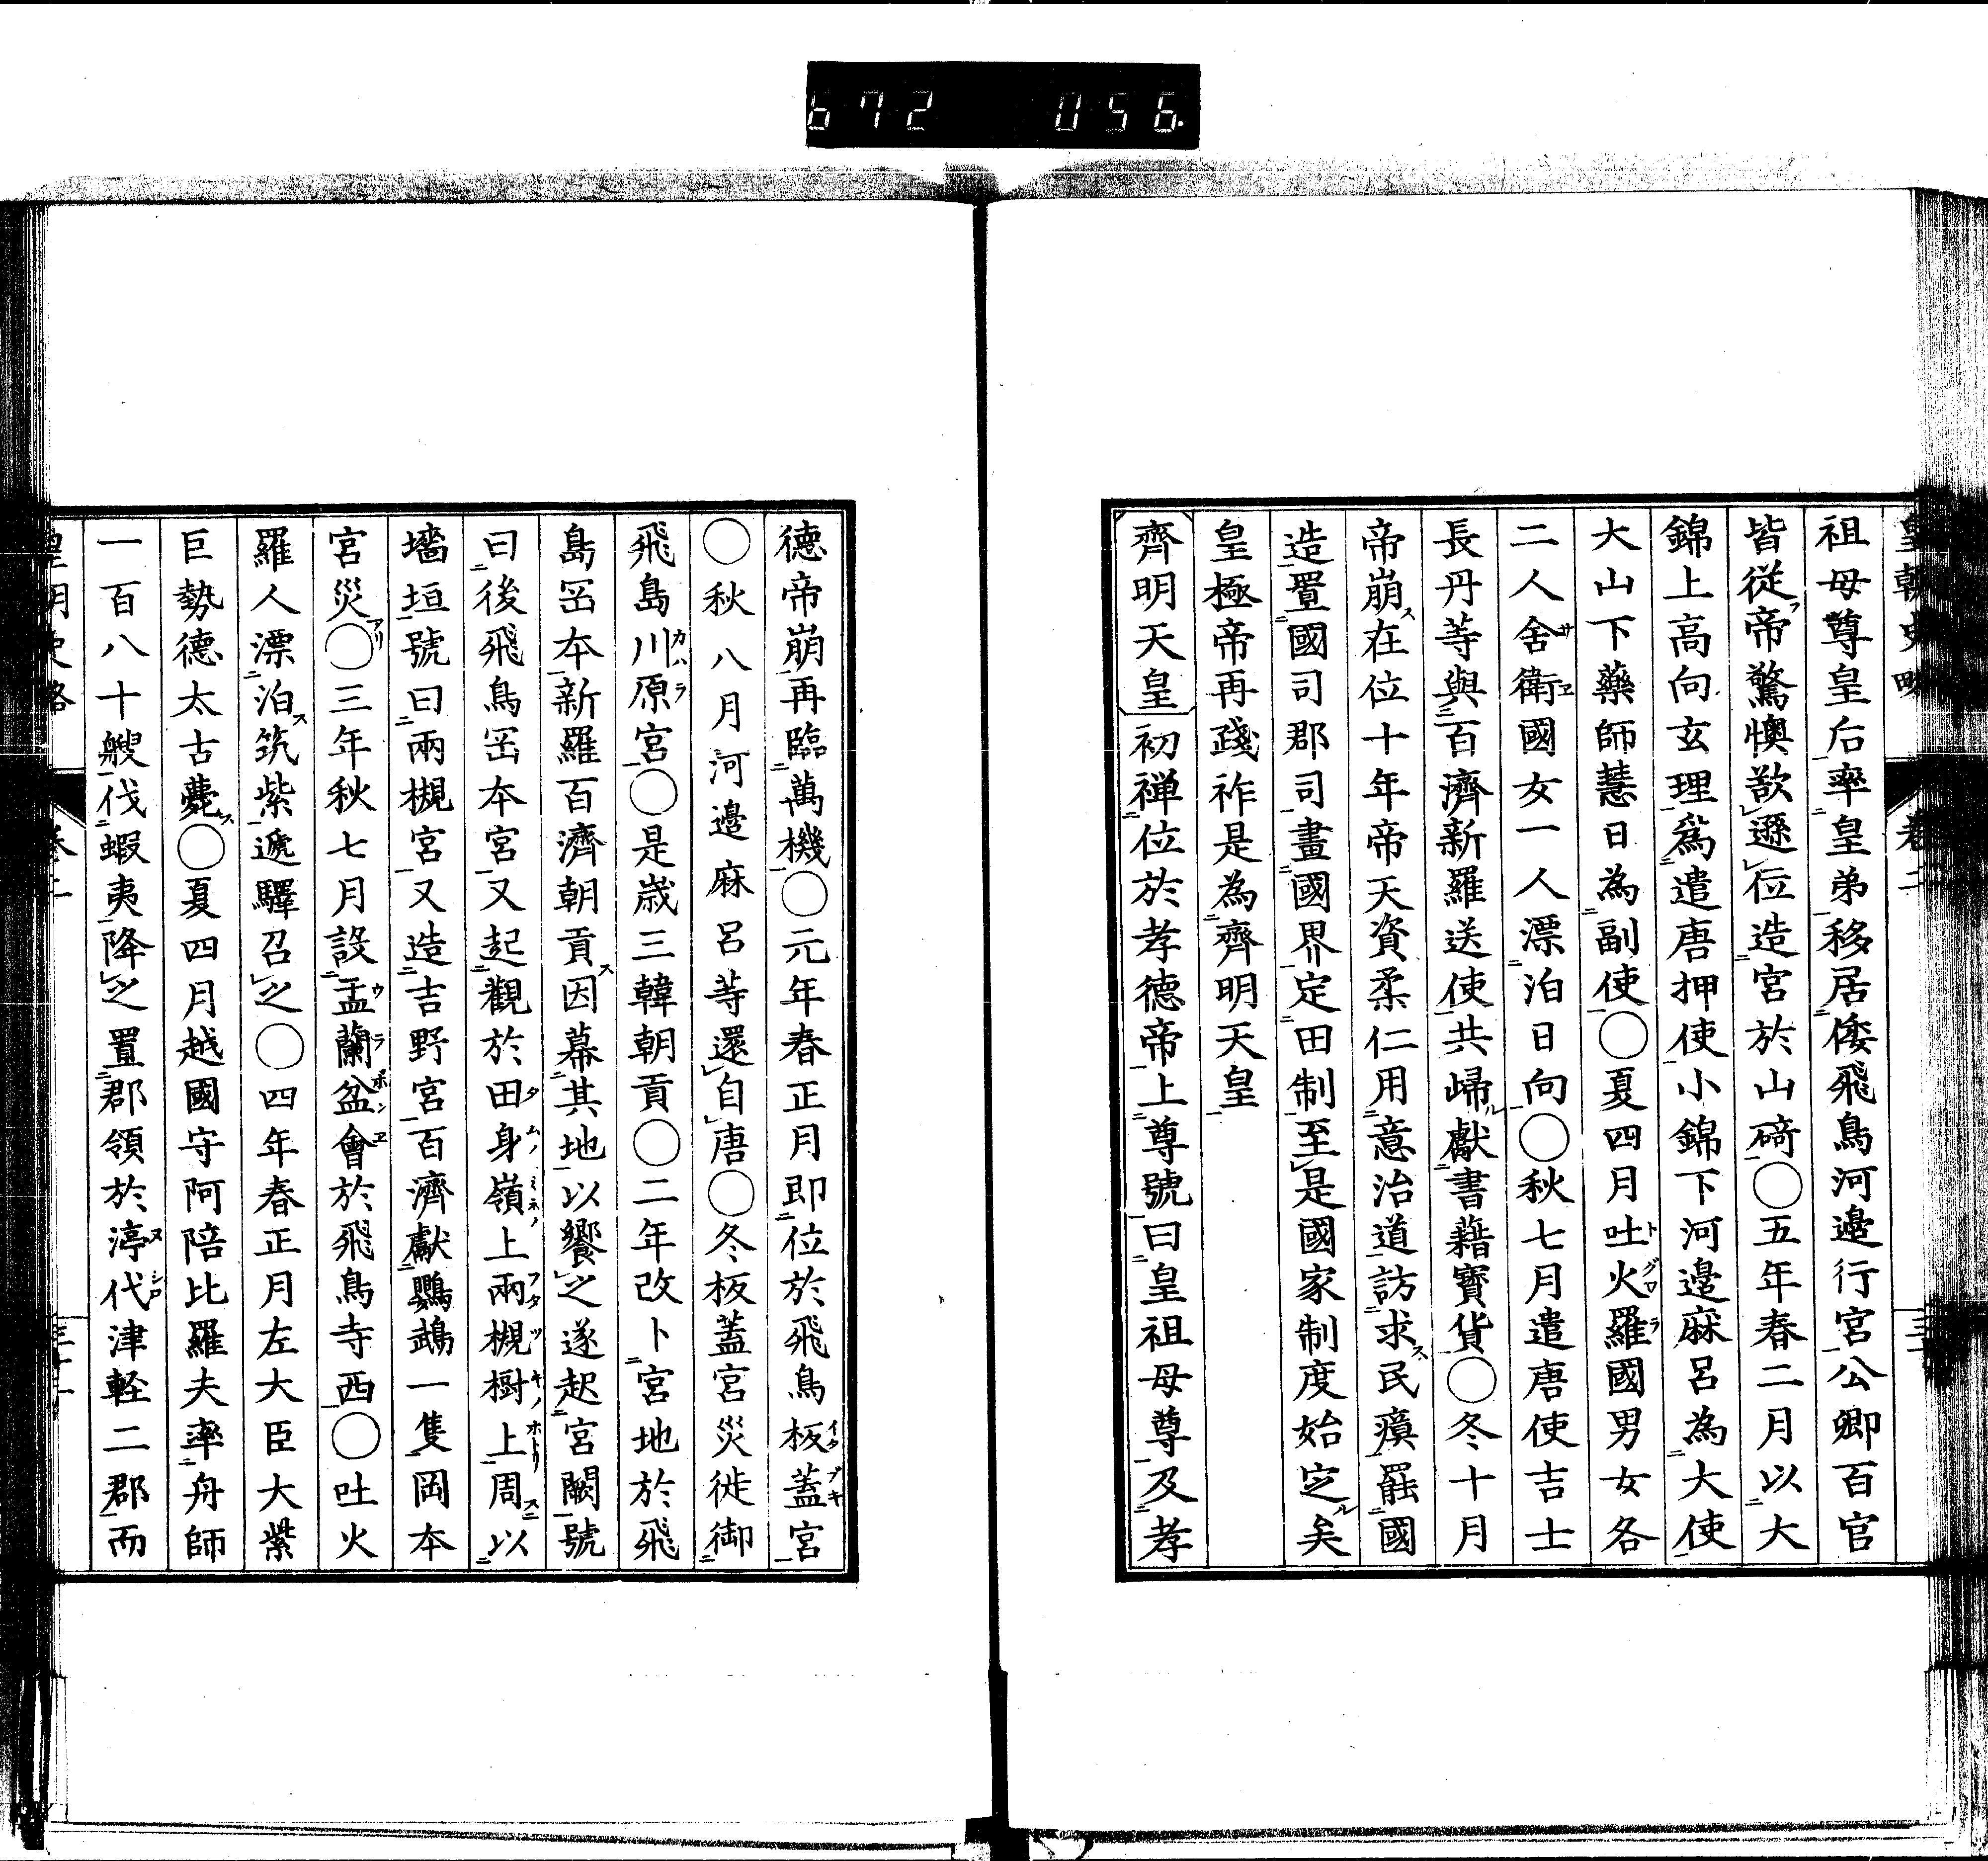 672 056
皇朝史略 卷二
祖母尊皇后率皇弟移居倭飛鳥河邉行宮公卿百官
皆從帝驚懊歎遜位造宮於山碕〇五年春二月以大
錦上高向玄理爲遣唐押使小錦下河邉麻呂為大使
大山下藥師慧日為副使〇夏四月吐火羅國男女各
二人舍衛國女一人漂泊日向〇秋七月遣唐使吉士
長丹等與百濟新羅送使共歸獻書藉寳貨〇冬十月
帝崩在位十年帝天資柔仁用意治道訪求民瘼罷國
造置國司郡司畫國界定田制至是國家制度始定矣
皇極帝再踐祚是為齊明天皇
齊明天皇初禅位於孝德帝上尊號曰皇祖母尊及孝
德帝崩再臨萬機〇元年春正月即位於飛鳥板蓋宮
〇秋八月河邉麻呂等還自唐〇冬板蓋宮災徙御
飛島川原宮〇是歳三韓朝貢〇二年改卜宮地於飛
島岡本新羅百濟朝貢因幕其地以饗之遂起宮闕號
曰後飛鳥岡本宮又起觀於田身嶺上兩槻樹上周以
墻垣號曰兩槻宮又造吉野宮百濟獻鸚鵡一隻岡本
宮災〇三年秋七月設盂蘭盆會於飛鳥寺西〇吐火
羅人漂泊筑紫遞驛召之〇四年春正月左大臣大紫
巨勢德太古薨〇夏四月越國守阿陪比羅夫率舟師
一百八十艘伐蝦夷降之置郡領於渟代津軽二郡而